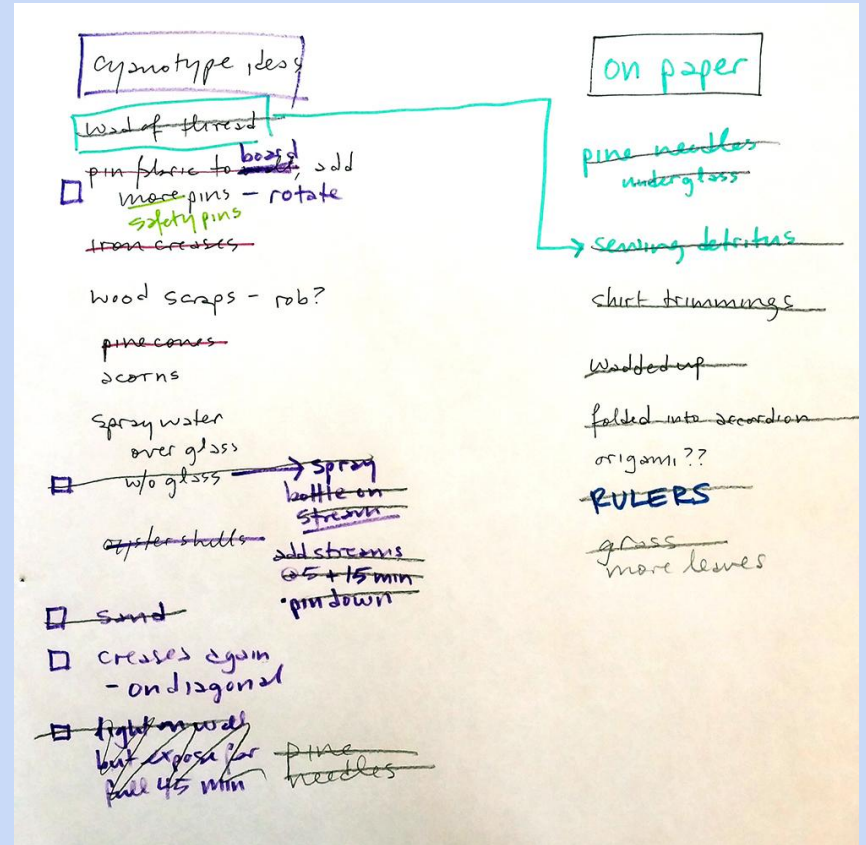 cyanotype ideas
wad of thread
pin fabric to board, add
more pins - rotate
safety pins
iron creases
wood scraps - rob?
pine cones
acorns
spray water
over glass
w/o glass
spray
bottle on
stream
oyster shells
add streams
@5 + 15 min
• pin down
sand
creases again
- on diagonal
light on wall
but expose for
full 45 min
pine
needles
on paper
pine needles
under glass
sewing detritus
shirt trimmings
wadded up
folded into accordion
origami??
RULERS
grass
more leaves